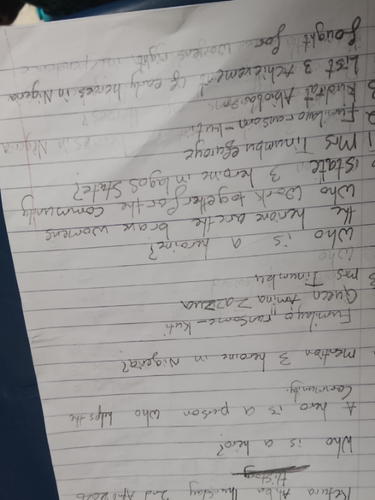 Thursday 2nd
History
Who is a hero?
A hero is a person who helps the
Community.
mention 3 heroine in Nigeria?
Funmilayo ransome - kuti
Queen Amina Zazzua
Mrs Tinumbu
Who
Who is a heroine?
the heroine are the brave womens
who work together for the community
State 3 heroine in lagos State?
1 Mrs Tinumbu
2 Funmilayo ransom - kuti
3 Kudirat Abiola
List 3 Achievement of early heroies in Nigeria
fought for womens right